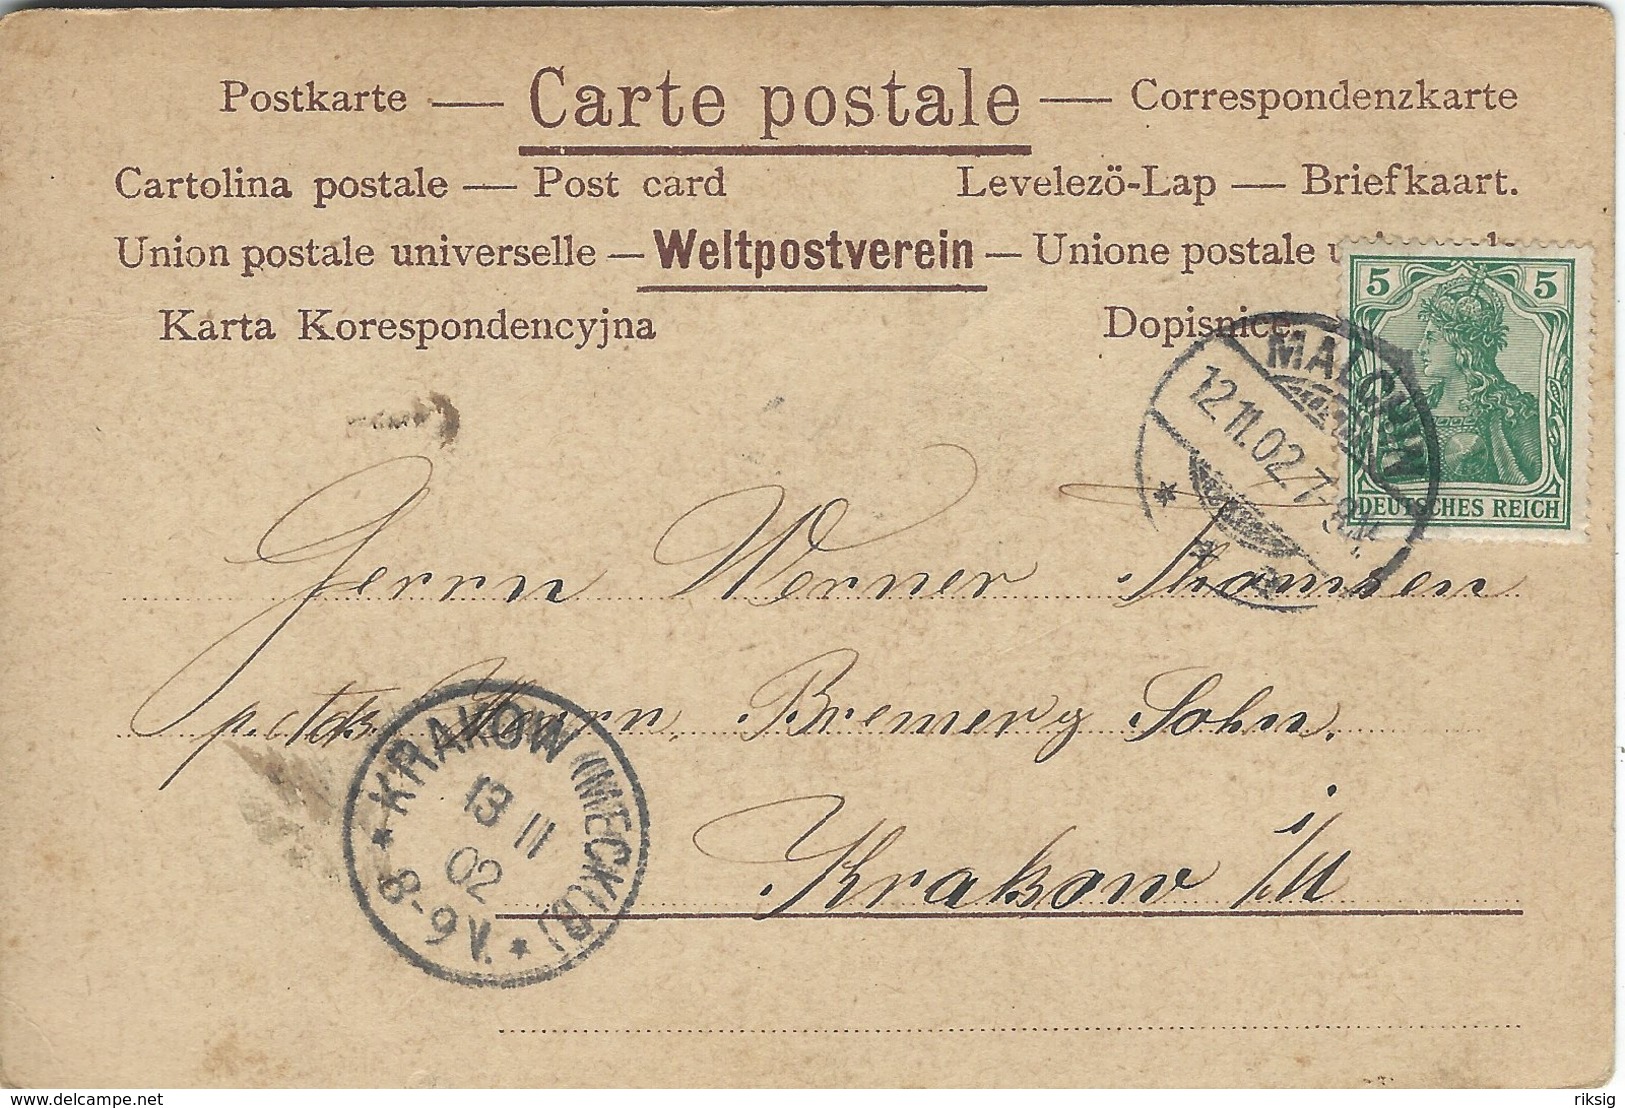 Postkarte — Carte postale — Correspondenzkarte
Cartolina postale — Post card Levelezö-Lap — Briefkaart.
Union postale universelle — Weltpostverein — Unione postale
Karta Korespondencyjna Dopisnice.
5 5
DEUTSCHES REICH
MALCHIN
12.11.02. 7-8N.
Herrn Werner Thomsen
Herrn Bremer Sohn.
Krakow i/M
KRAKOW (MECKLB)
13 11
02
8-9V.
delcampe.net
riksig